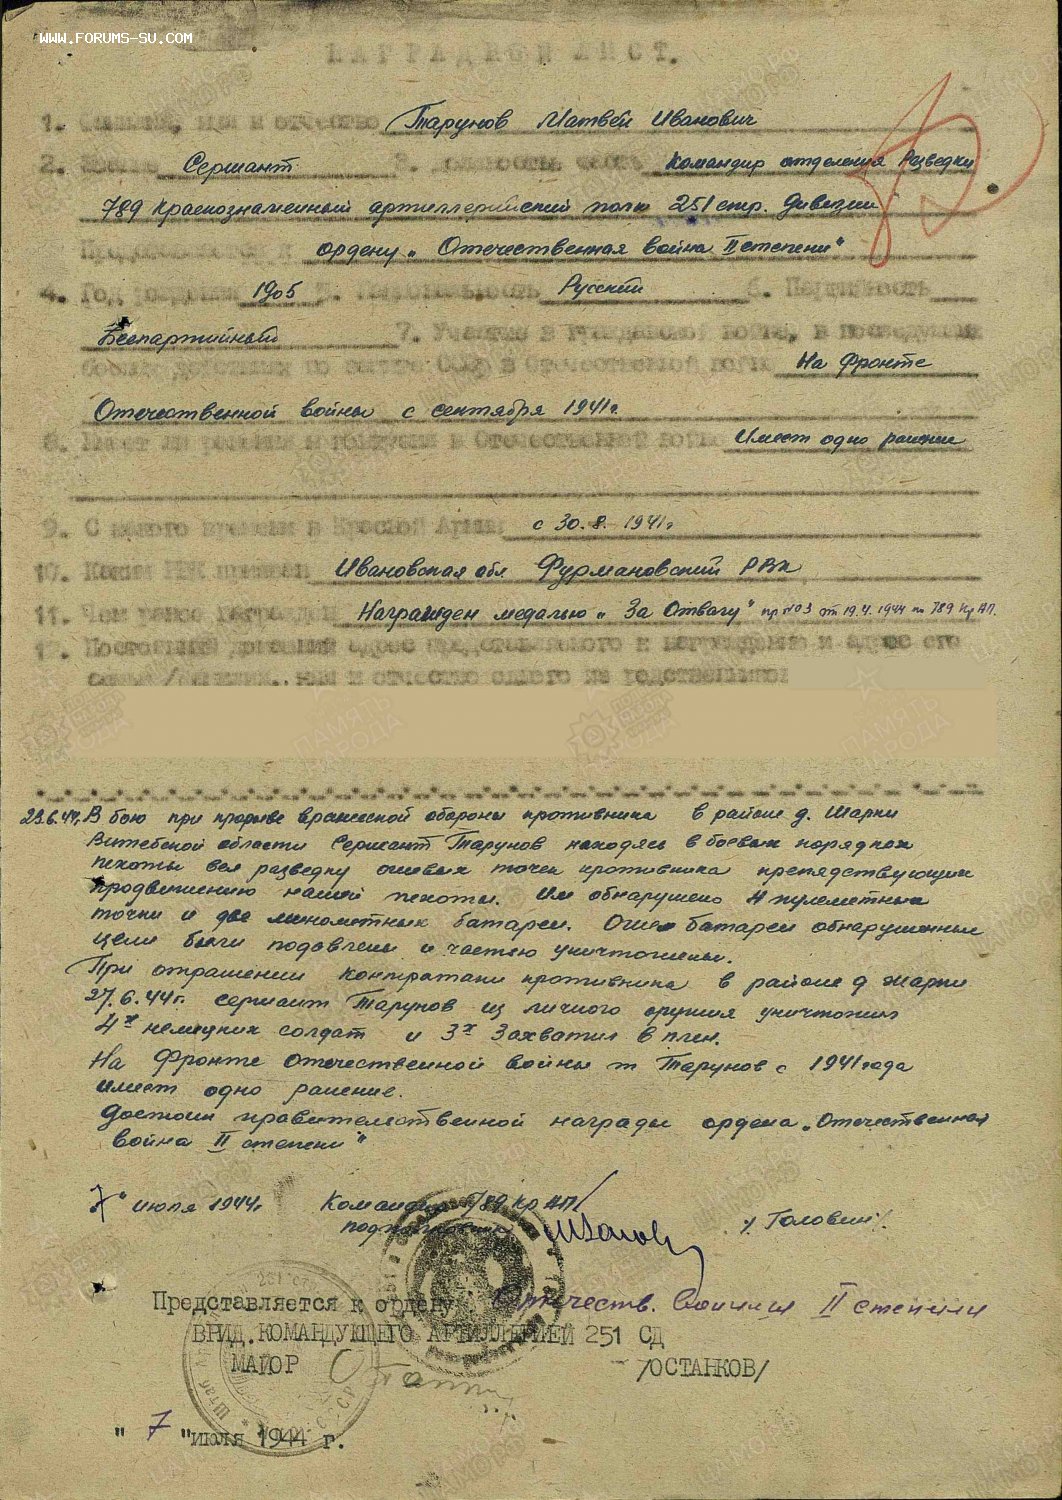 WWW.FORUMS-SU.COM
НАГРАДНОЙ ЛИСТ.
1. Фамилия, имя и отчество Тарунов Матвей Иванович
2. Звание Сержант 3. должность, часть Командир отделения Разведки
789 Краснознаменный артиллерийский полк 251 стр. Дивизии
Представляется к ордену „Отечественная война II степени"
4. Год рождения 1905 5. Национальность Русский 6. Партийность
Беспартийный 7. Участие в гражданской войне, в последующих
боевых действиях по защите СССР в Отечественной войне На Фронте
Отечественной войны с сентября 1941г.
8. Имеет ли ранения и контузии в Отечественной войне Имеет одно ранение
9. С какого времени в Красной Армии с 30.8.1941г
10. Каким РВК призван Ивановская обл Фурмановский РВК
11. Чем ранее награжден Награжден медалью „За Отвагу" пр №03 от 19.4.1944 по 789 Кр АП.
12. Постоянный домашний адрес представляемого к награждению и адрес его
семьи /фамилия, имя и отчество одного из родственников
23.6.44г. В бою при прорыве вражеской обороны противника в районе д. Шарки
Витебской области Сержант Тарунов находясь в боевых порядках
пехоты вел разведку огневых точек противника препядствующих
продвижению нашей пехоты. Им обнаружено 4 пулеметных
точки и две минометных батареи. Огнем батареи обнаруженные
цели были подавлены и частью уничтожены.
При отражении контратаки противника в районе д Жарки
27.6.44г. сержант Тарунов из личного оружия уничтожил
4х немецких солдат и 3х Захватил в плен.
На Фронте Отечественной войны т Тарунов с 1941 года
имеет одно ранение.
Достоин правительственной награды ордена „Отечественная
война II степени"
7" июля 1944г Командир 789 Кр АП/
подполковник /. Головин/.
Представляется к ордену Отечеств. Войны II степени
ВРИД.КОМАНДУЮЩЕГО АРТИЛЛЕРИЕЙ 251 СД
МАЙОР /ОСТАНКОВ/
" 7 "июля 1944 г.